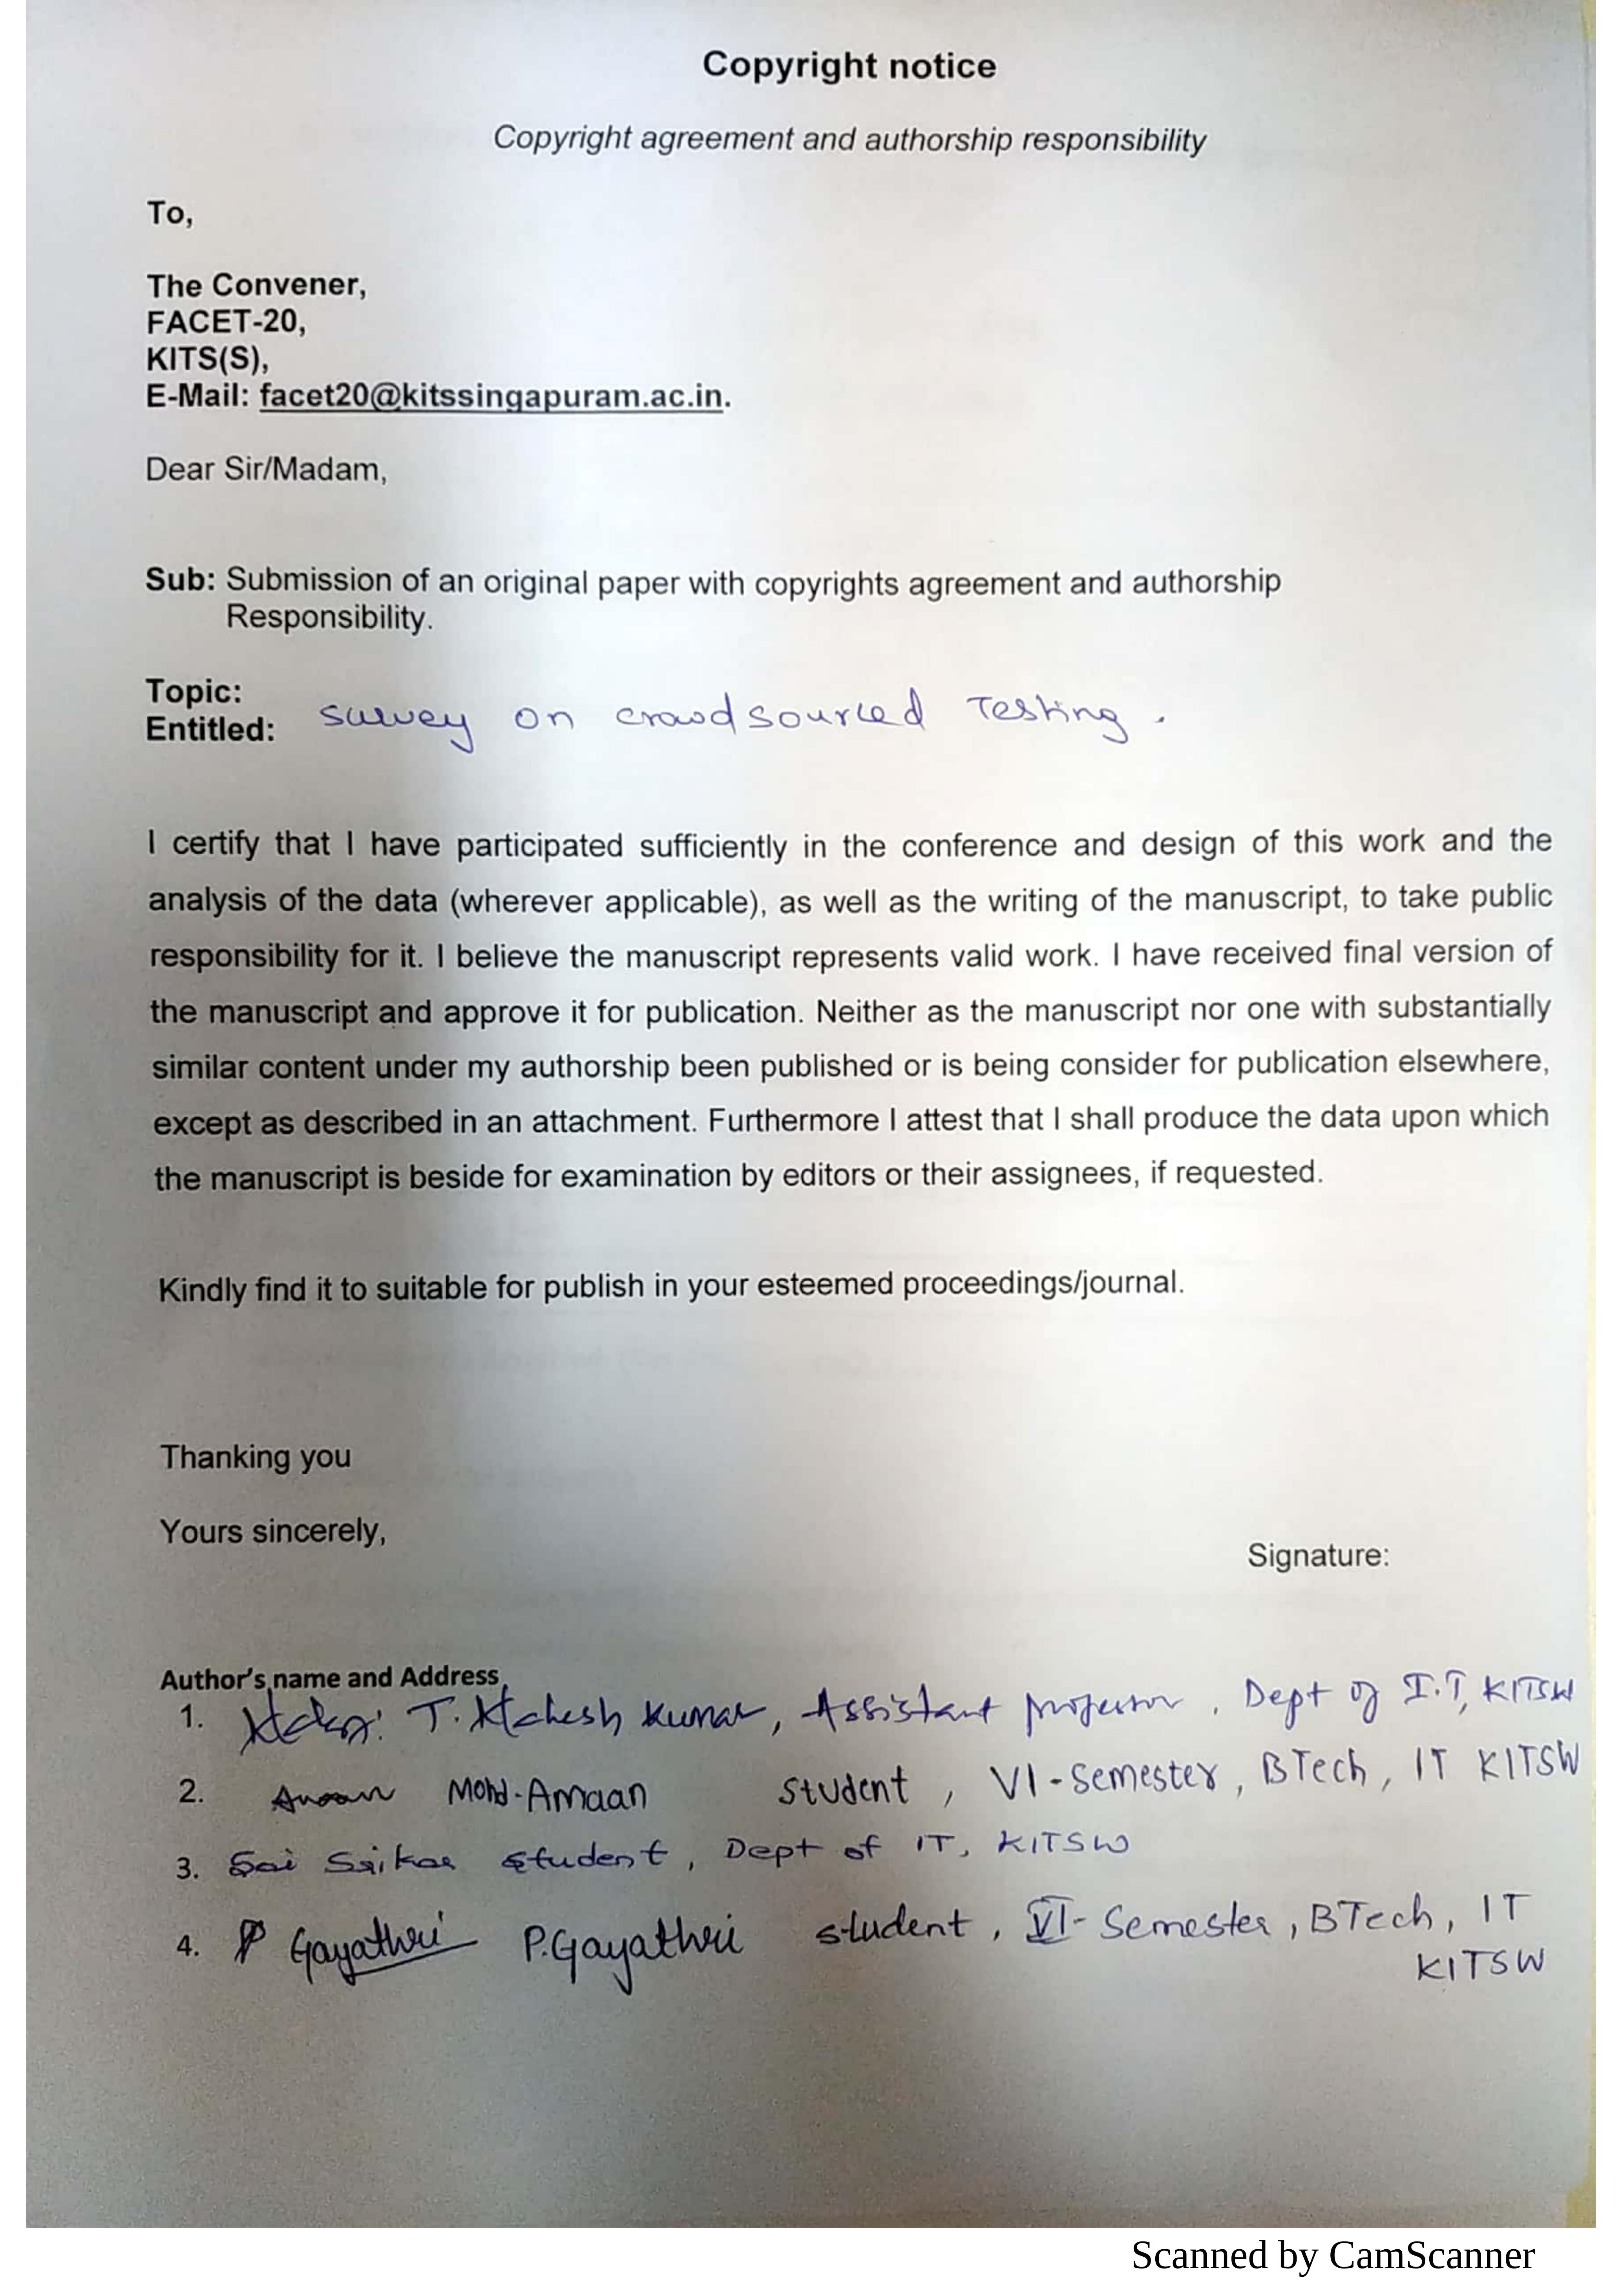 Copyright notice
Copyright agreement and authorship responsibility
To,
The Convener,
FACET-20,
KITS(S),
E-Mail: facet20@kitssingapuram.ac.in.
Dear Sir/Madam,
Sub: Submission of an original paper with copyrights agreement and authorship
Responsibility.
Topic:
Entitled: survey on crowdsourced Testing.
I certify that I have participated sufficiently in the conference and design of this work and the
analysis of the data (wherever applicable), as well as the writing of the manuscript, to take public
responsibility for it. I believe the manuscript represents valid work. I have received final version of
the manuscript and approve it for publication. Neither as the manuscript nor one with substantially
similar content under my authorship been published or is being consider for publication elsewhere,
except as described in an attachment. Furthermore I attest that I shall produce the data upon which
the manuscript is beside for examination by editors or their assignees, if requested.
Kindly find it to suitable for publish in your esteemed proceedings/journal.
Thanking you
Yours sincerely,
Signature:
Author's name and Address
1. T. Mahesh Kumar, Assistant professor, Dept of I.T, KITSW
2. Amaan Mohd-Amaan Student, VI-Semester, BTech, IT KITSW
3. Sai Srikar Student, Dept of IT, KITSW
4. P Gayathri P.Gayathri student, VI-Semester, BTech, IT
KITSW
Scanned by CamScanner